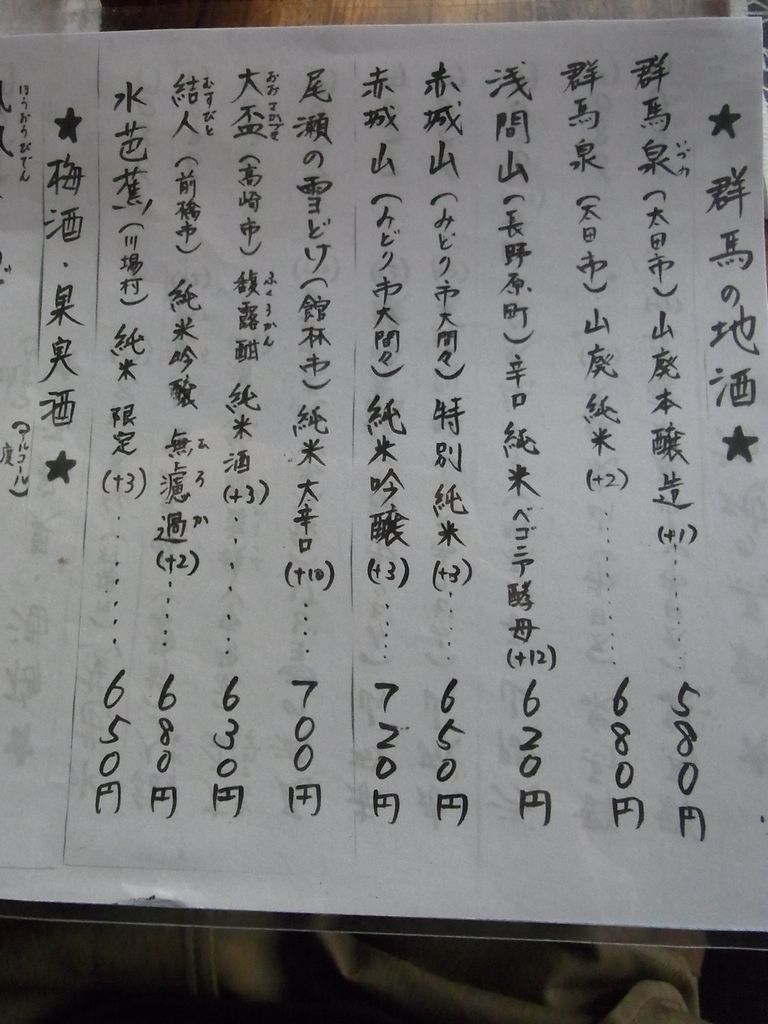 ★ 群馬の地酒 ★
群馬泉(太田市)山廃本醸造(+1)……580円
群馬泉(太田市)山廃純米(+2)……680円
浅間山(長野原町)辛口純米ベゴニア酵母(+12) 620円
赤城山(みどり市大間々)特別純米(+3)……650円
赤城山(みどり市大間々)純米吟醸(+3)……720円
尾瀬の雪どけ(館林市)純米大辛口(+10)……700円
おおさかずき
大盃(高崎市)馥露酣 純米酒(+3)……630円
ふくろかん
むすびと
結人(前橋市)純米吟醸 無濾過(+2)……680円
むろか
水芭蕉(川場村)純米 限定(+3)……650円
★ 梅酒・果実酒 ★
(アルコール)度
ほうおうびでん